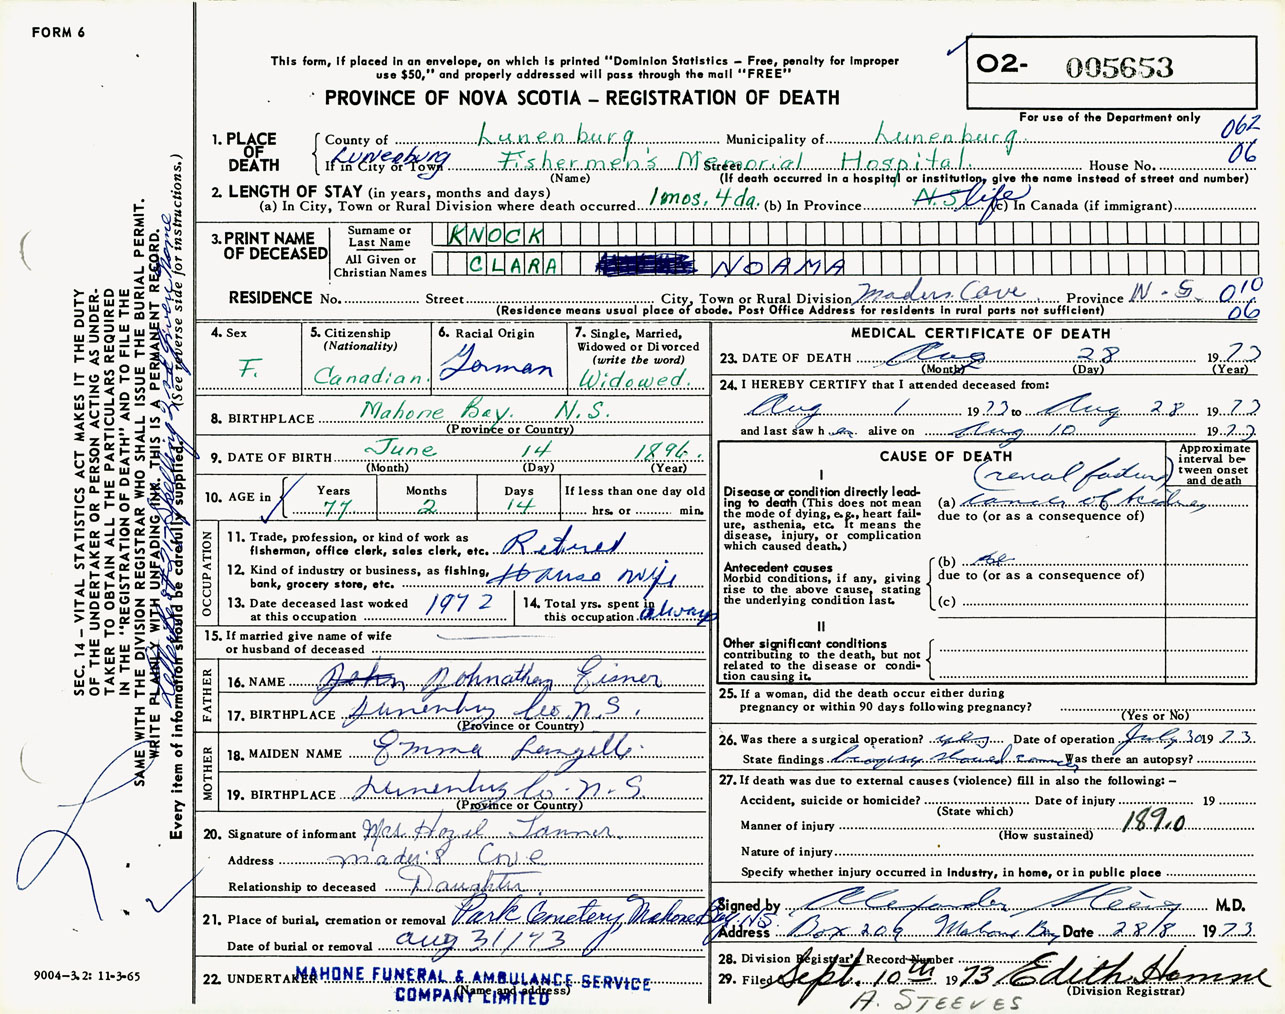 FORM 6
This form, if placed in an envelope, on which is printed "Dominion Statistics – Free, penalty for improper
use $50," and properly addressed will pass through the mail "FREE"
PROVINCE OF NOVA SCOTIA – REGISTRATION OF DEATH
02- 005653
For use of the Department only
062
06
1. PLACE OF DEATH
County of Lunenburg Municipality of Lunenburg
If in City or Town Lunenburg Street Fishermen's Memorial Hospital House No.
(Name) (If death occurred in a hospital or institution, give the name instead of street and number)
2. LENGTH OF STAY (in years, months and days)
(a) In City, Town or Rural Division where death occurred 1 mos. 4 da. (b) In Province N.S. life (c) In Canada (if immigrant)
3. PRINT NAME OF DECEASED
Surname or Last Name KNOCK
All Given or Christian Names CLARA NOAMA
RESIDENCE No. Street City, Town or Rural Division Maders Cove Province N.S. 010
(Residence means usual place of abode. Post Office Address for residents in rural parts not sufficient) 06
4. Sex F.
5. Citizenship (Nationality) Canadian.
6. Racial Origin German
7. Single, Married, Widowed or Divorced (write the word) Widowed.
8. BIRTHPLACE Mahone Bay. N.S.
(Province or Country)
9. DATE OF BIRTH June 14 1896.
(Month) (Day) (Year)
10. AGE in Years 77 Months 2 Days 14 If less than one day old
hrs. or min.
OCCUPATION
11. Trade, profession, or kind of work as
fisherman, office clerk, sales clerk, etc. Retired
12. Kind of industry or business, as fishing,
bank, grocery store, etc. House wife
13. Date deceased last worked
at this occupation 1972
14. Total yrs. spent in
this occupation always
15. If married give name of wife
or husband of deceased
FATHER
16. NAME John Johnathan Eisner
17. BIRTHPLACE Lunenburg Co. N.S.
(Province or Country)
MOTHER
18. MAIDEN NAME Emma Langille
19. BIRTHPLACE Lunenburg Co. N.S
(Province or Country)
20. Signature of informant Mrs. Hazel Tanner.
Address Mader's Cove
Relationship to deceased Daughter.
21. Place of burial, cremation or removal Park Cemetery, Mahone Bay, N.S.
Date of burial or removal Aug 31/73
22. UNDERTAKER MAHONE FUNERAL & AMBULANCE SERVICE
COMPANY LIMITED
(Name and address)
MEDICAL CERTIFICATE OF DEATH
23. DATE OF DEATH Aug 28 1973
(Month) (Day) (Year)
24. I HEREBY CERTIFY that I attended deceased from:
Aug 1 1973 to Aug 28 1973
and last saw her alive on Aug 10 1973
CAUSE OF DEATH
Approximate interval between onset and death
I
Disease or condition directly leading to death (This does not mean the mode of dying, e.g., heart failure, asthenia, etc. It means the disease, injury, or complication which caused death.)
(renal failure)
(a) cancer of kidney
due to (or as a consequence of)
Antecedent causes
Morbid conditions, if any, giving rise to the above cause, stating the underlying condition last.
(b)
due to (or as a consequence of)
(c)
II
Other significant conditions
contributing to the death, but not related to the disease or condition causing it.
25. If a woman, did the death occur either during
pregnancy or within 90 days following pregnancy?
(Yes or No)
26. Was there a surgical operation? Date of operation July 30 1973.
State findings biopsy showed cancer Was there an autopsy?
27. If death was due to external causes (violence) fill in also the following: –
Accident, suicide or homicide? Date of injury 19
(State which)
Manner of injury 189.0
(How sustained)
Nature of injury
Specify whether injury occurred in Industry, in home, or in public place
Signed by Alexander M.D.
Address Box 209 Mahone Bay Date 28/8 1973
28. Division Registrar's Record Number
29. Filed Sept. 10th 1973 Edith
(Division Registrar)
A. STEEVES
SEC. 14 – VITAL STATISTICS ACT MAKES IT THE DUTY
OF THE UNDERTAKER OR PERSON ACTING AS UNDER-
TAKER TO OBTAIN ALL THE PARTICULARS REQUIRED
IN THE "REGISTRATION OF DEATH" AND TO FILE THE
SAME WITH THE DIVISION REGISTRAR WHO SHALL ISSUE THE BURIAL PERMIT.
WRITE PLAINLY WITH UNFADING INK. THIS IS A PERMANENT RECORD.
Every item of information should be carefully supplied. (See reverse side for instructions.)
9004-3.2: 11-3-65